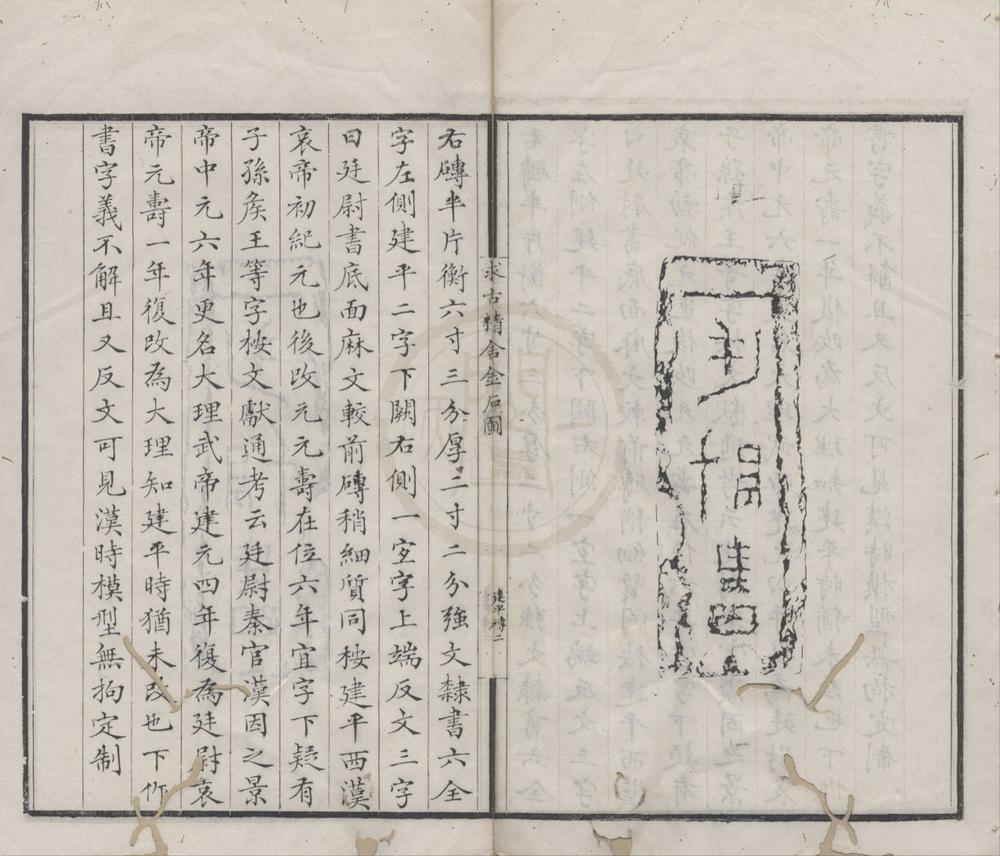 求古精舍金石圖
建平磚二
右磚半片衡六寸三分厚二寸二分強文隸書六全
字左側建平二字下闕右側一宐字上端反文三字
曰廷尉書底面麻文較前磚稍細質同桉建平西漢
哀帝初紀元也後改元元壽在位六年宜字下疑有
子孫矦王等字桉文獻通考云廷尉秦官漢因之景
帝中元六年更名大理武帝建元四年復為廷尉哀
帝元壽一年復改為大理知建平時猶未改也下作
書字義不解且又反文可見漢時模型無拘定制